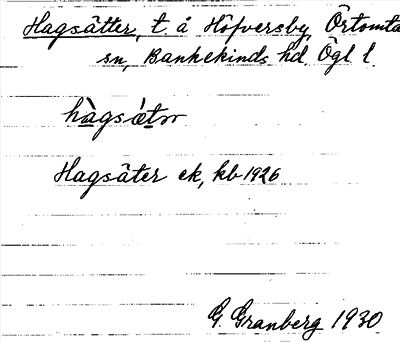 Hagsätter, t å Höfversby, Örtomta
sn, Bankekinds hd. Ögl l.
hàgsǽtər
Hagsäter ek, kb 1926
G. Granberg 1930